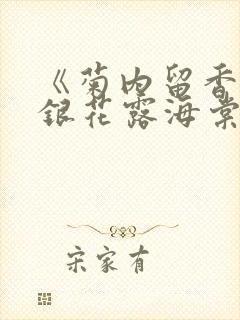 《菊内留香
銀花露海棠
宋家有